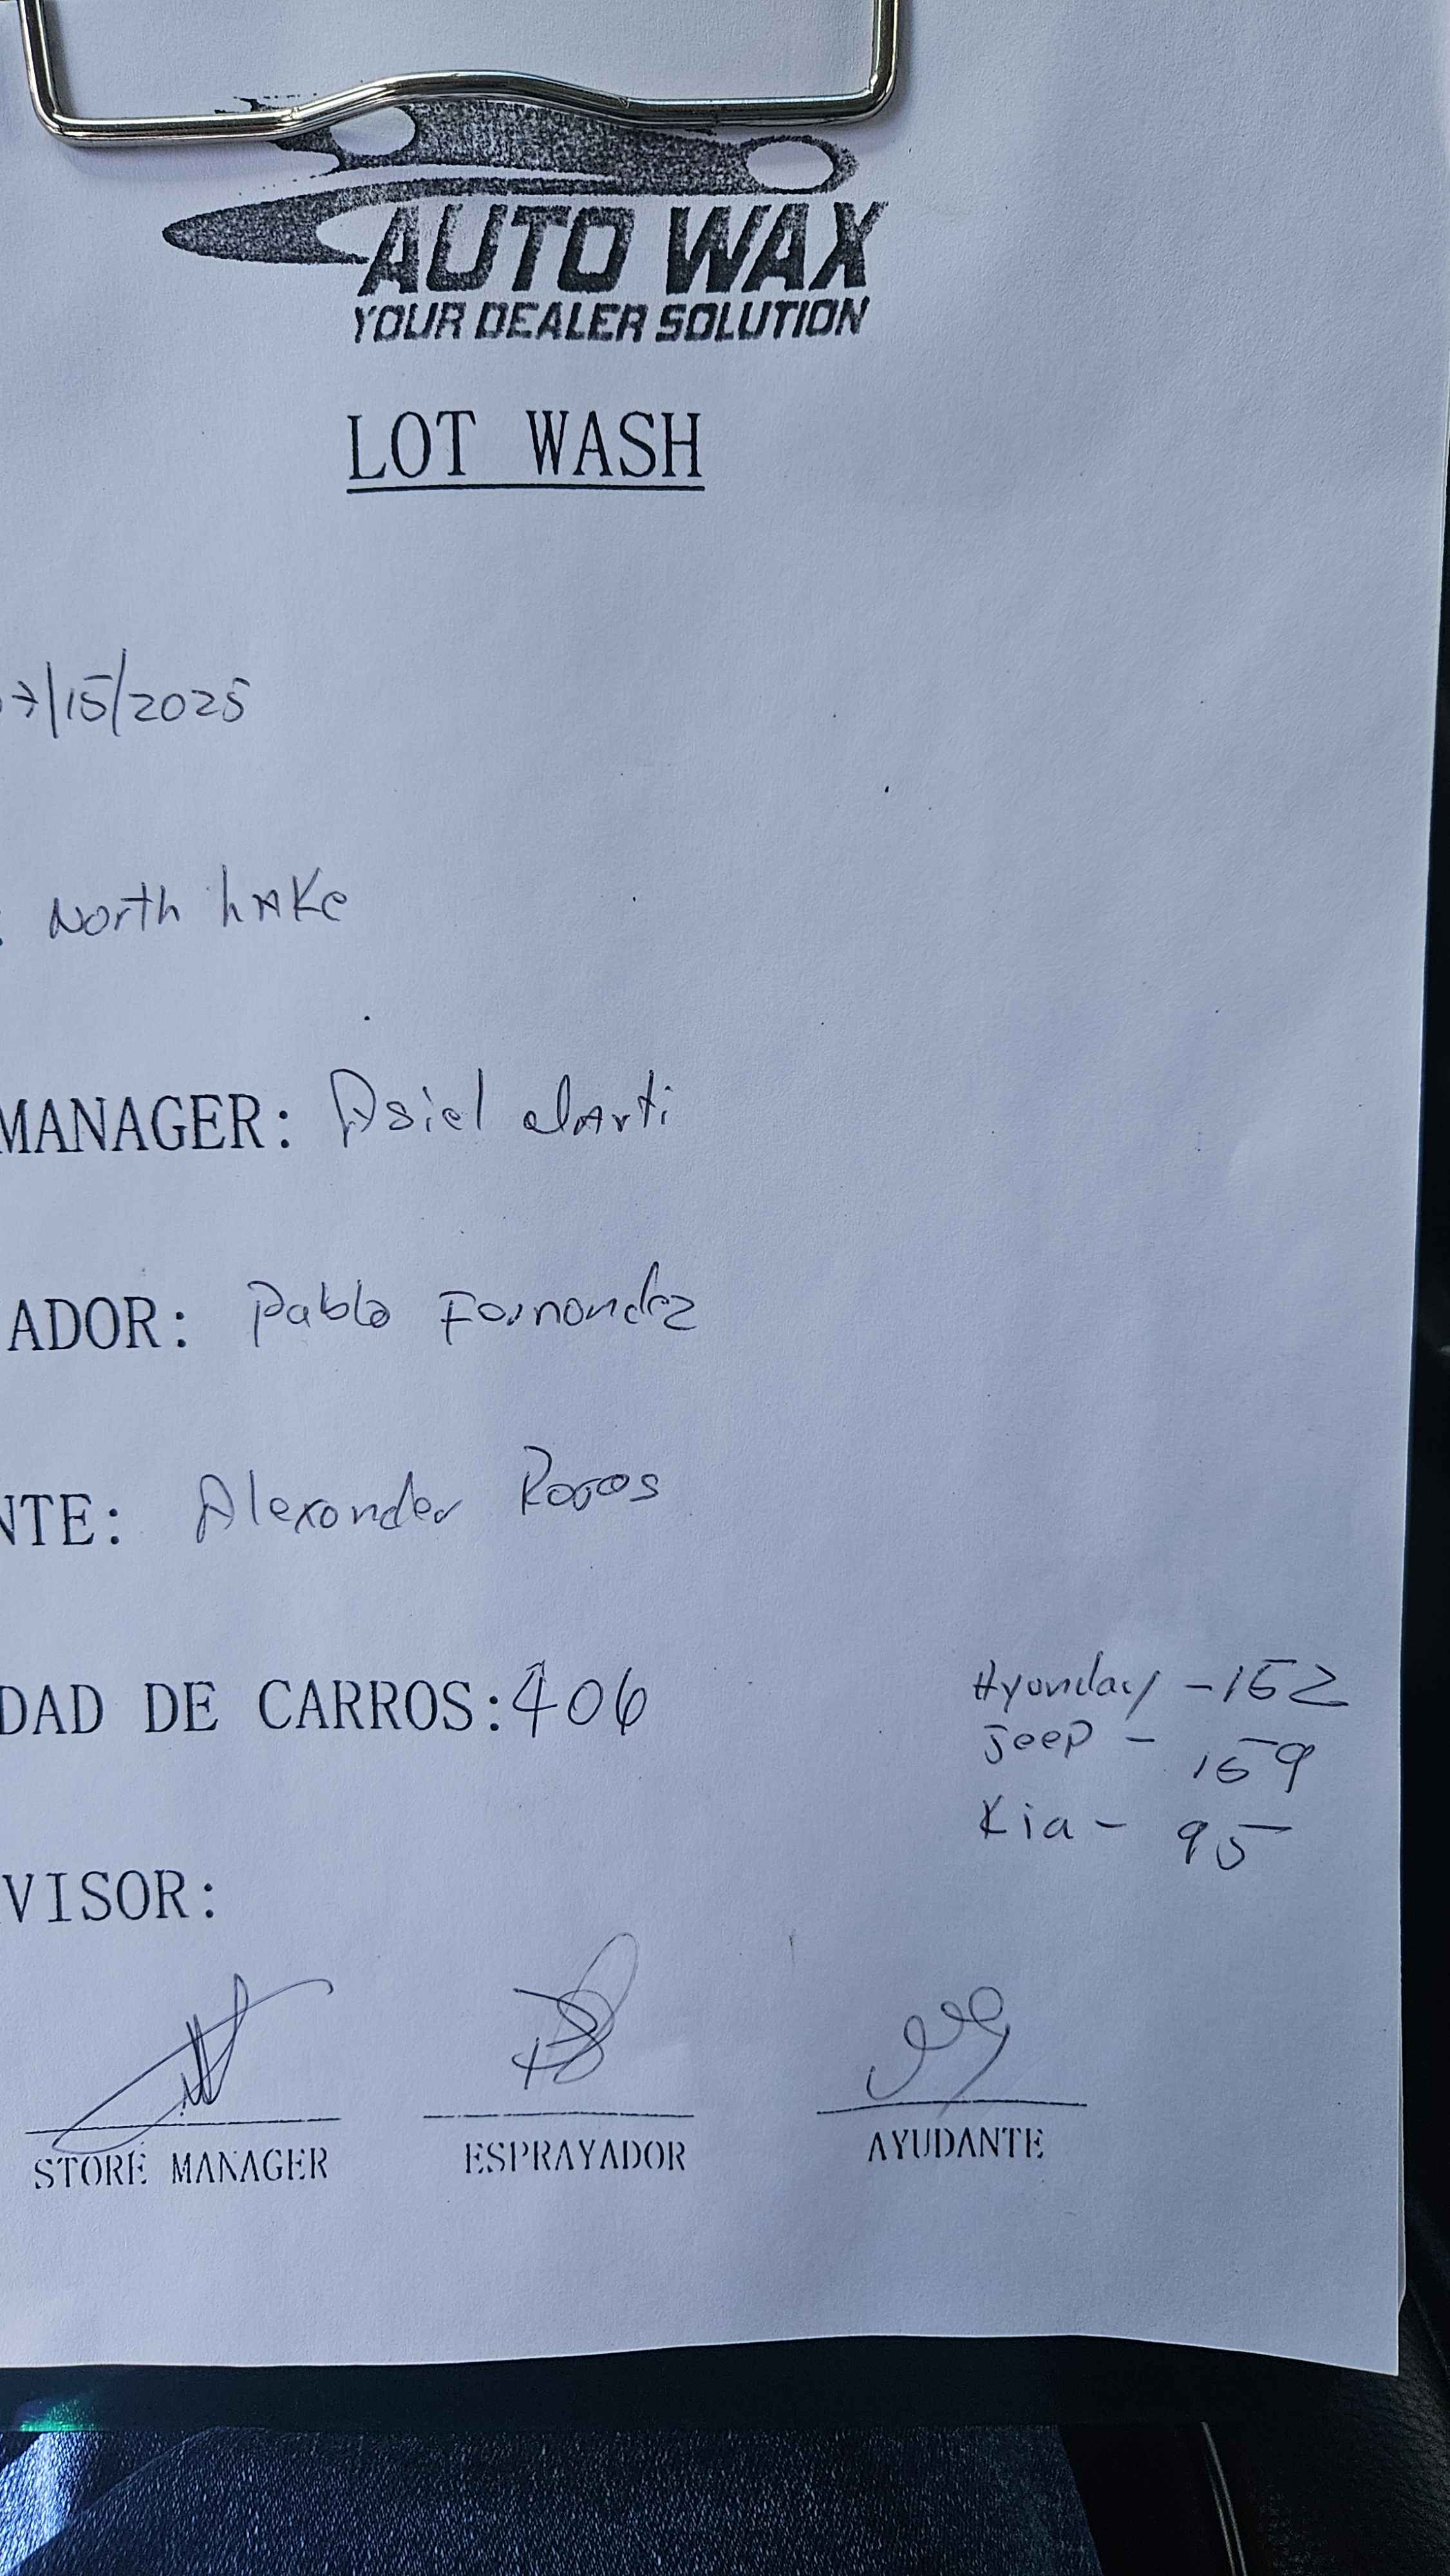 AUTO WAX
YOUR DEALER SOLUTION
LOT WASH
07/15/2025
: North Lake
MANAGER: Asiel Marti
ADOR: Pablo Fernandez
NTE: Alexander
DAD DE CARROS: 406
Hyunday - 152
Jeep - 159
Kia - 95
VISOR:
STORE MANAGER
ESPRAYADOR
AYUDANTE